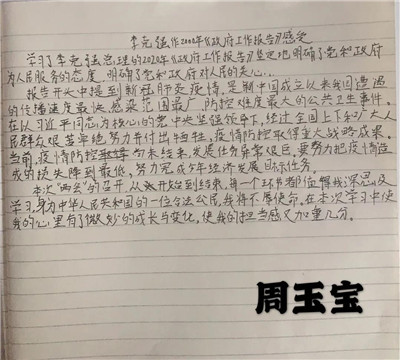 李克强作2020年《政府工作报告》感受
学习了李克强总理的2020年《政府工作报告》坚定地明确了党和政府
为人民服务的态度，明确了党和政府对人民的关心。
报告开头中提到新冠肺炎疫情，是新中国成立以来我国遭遇
的传播速度最快、感染范围最广、防控难度最大的公共卫生事件。
在以习近平同志为核心的党中央坚强领导下，经过全国上下和广大人
民群众艰苦卓绝努力并付出牺牲，疫情防控取得重大战略成果。
当前，疫情防控尚未结束，发展任务异常艰巨。要努力把疫情造
成的损失降到最低，努力完成今年经济发展目标任务。
本次"两会"的召开，从开始到结束，每一个环节都值得我深思及
学习，身为中华人民共和国的一位合法公民，我将不辱使命。在本次学习中使
我的心里有了微妙的成长与变化，使我的担当感又加重几分。
周玉宝